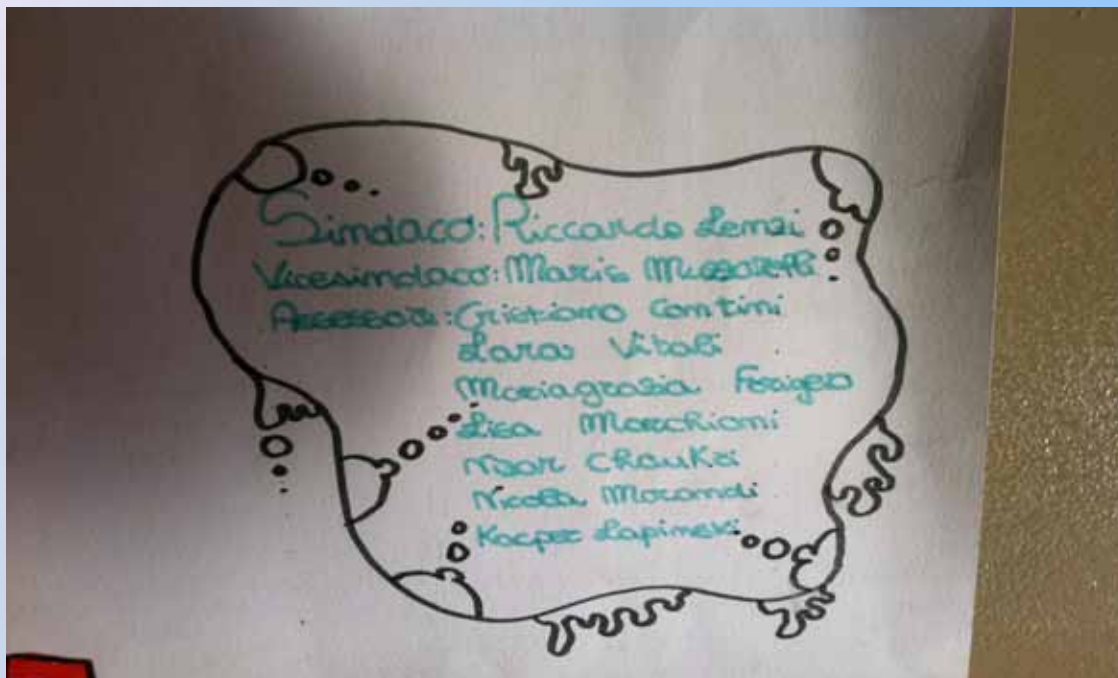 Sindaco: Riccardo Lenzi
Vicesindaco: Maria
Assessori: Cristiano Contini
Lara Vitali
Mariagrazia
Lisa Marchioni
Nour Chouki
Nicola Morandi
Kacper Lapinski